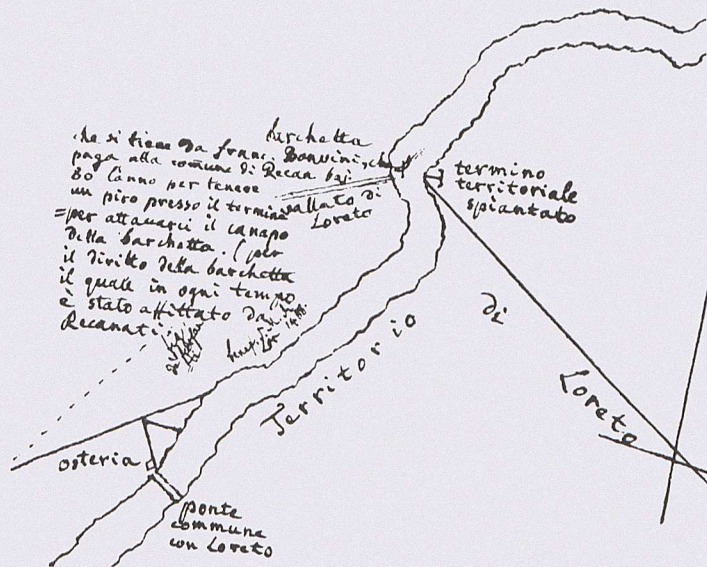 barchetta
che si tiene da Franc. Bonvini, che
paga alla comune di Recan baj:
80 l'anno per tenere
un piro presso il termine
=per attaccarci il canapo
della barchetta. (per
il diritto della barchetta
il quale in ogni tempo
è stato affittato da
Recanati
vallato di
Loreto
termino
territoriale
spiantato
Territorio di Loreto
osteria
ponte
commune
con Loreto